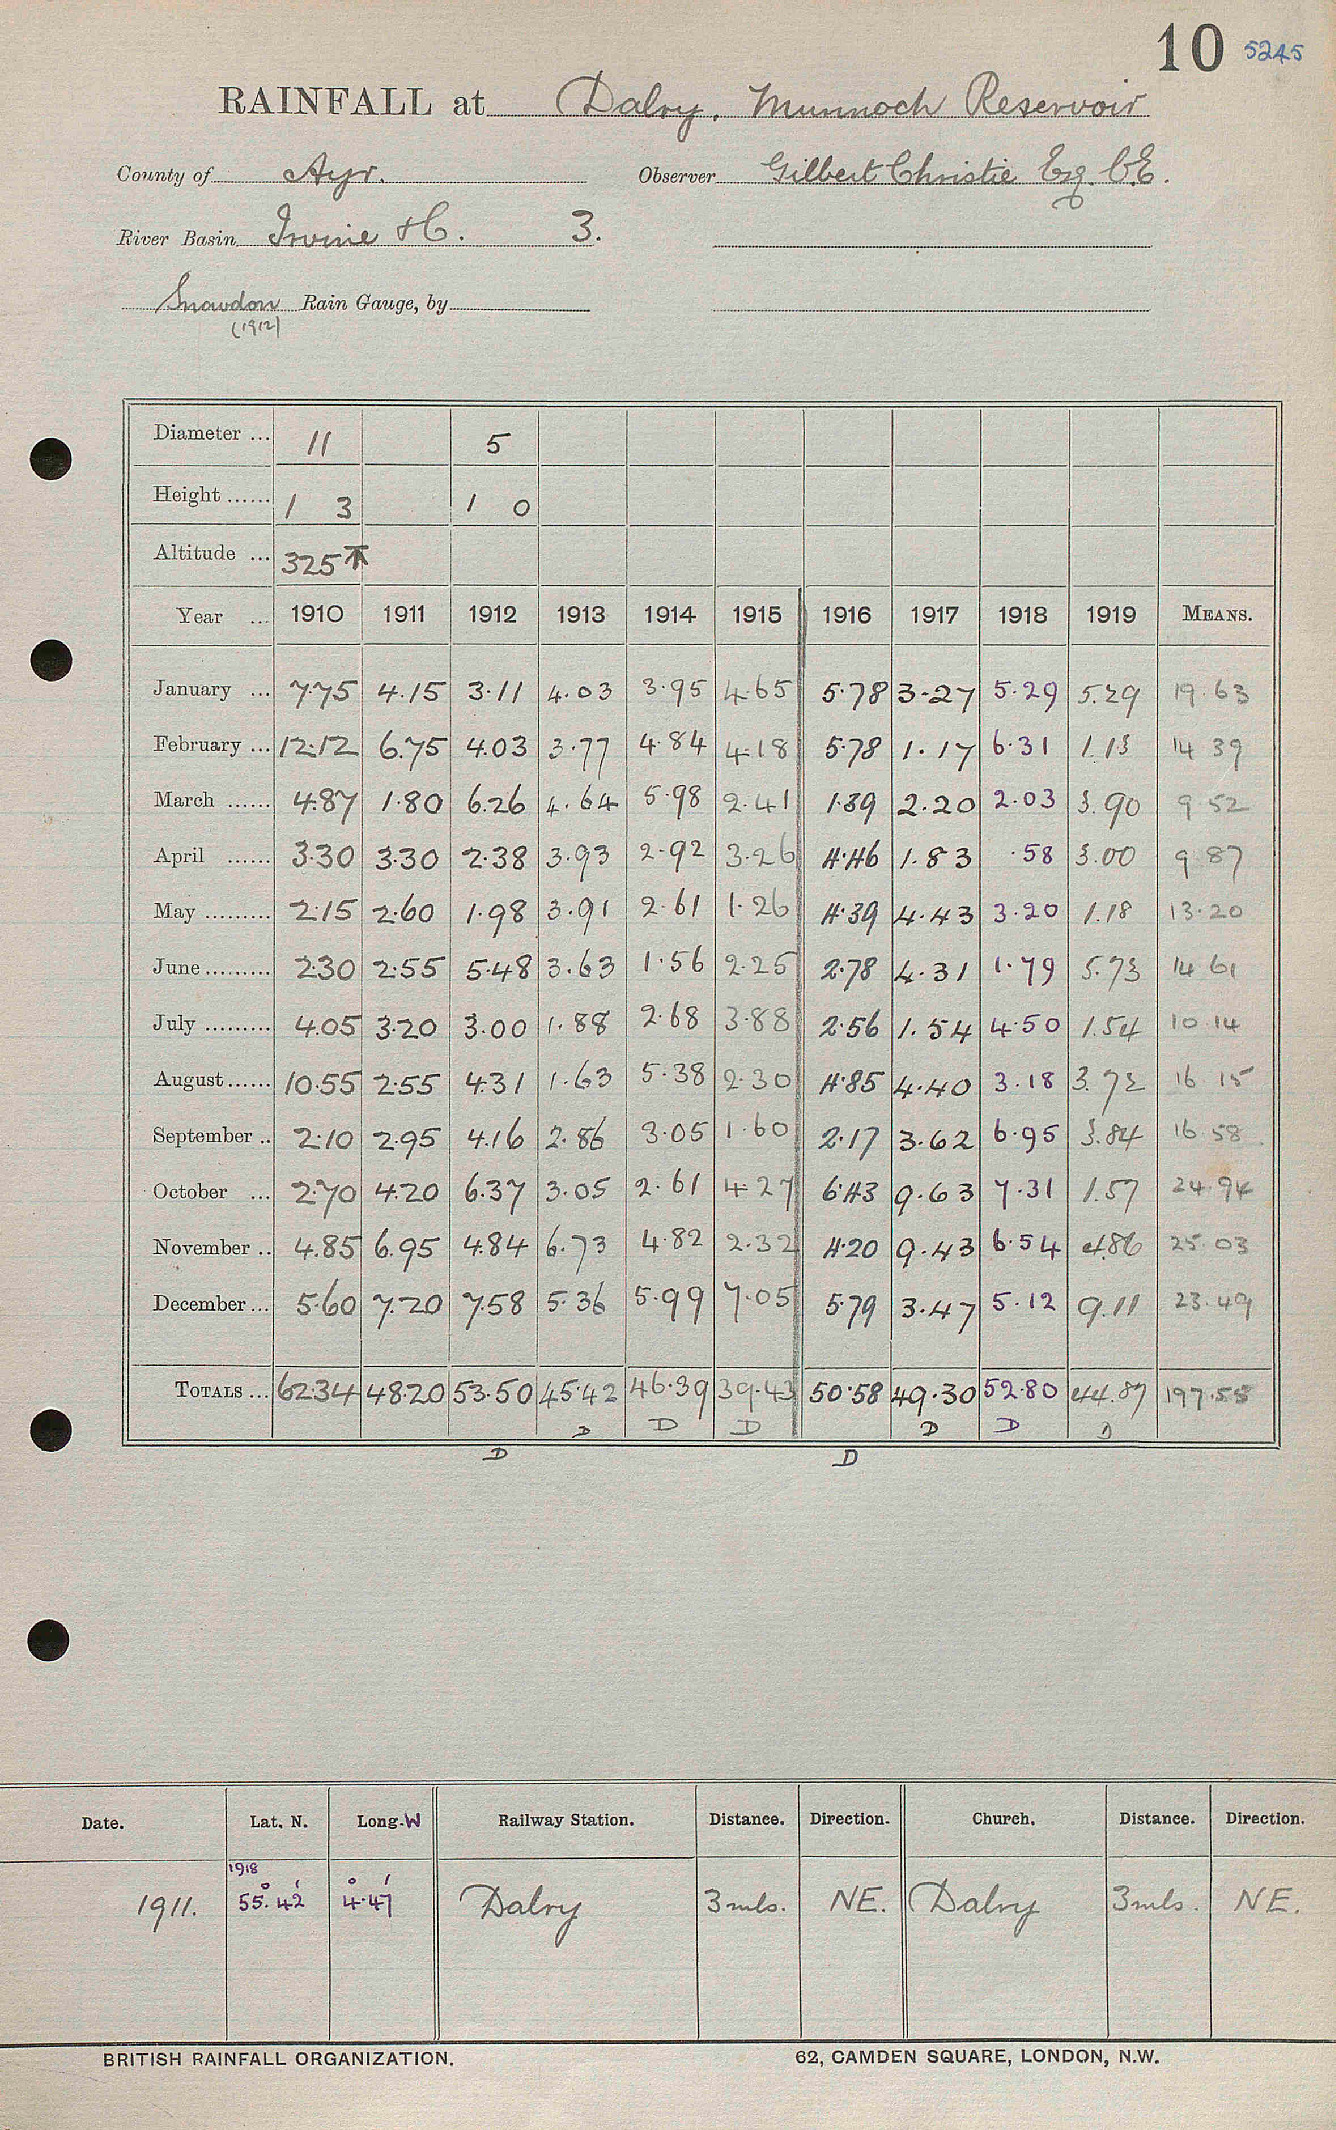 10 5245
RAINFALL at Dalry, Munnoch Reservoir
County of Ayr. Observer Gilbert Christie Esq. C.E.
River Basin Irvine &c. 3.
Snowdon Rain Gauge, by
(1912)
Diameter ... 11 5
Height ...... 1 3 1 0
Altitude ... 325
Year ... 1910 1911 1912 1913 1914 1915 1916 1917 1918 1919 MEANS.
January ... 7.75 4.15 3.11 4.03 3.95 4.65 5.78 3.27 5.29 5.29 19.63
February ... 12.12 6.75 4.03 3.77 4.84 4.18 5.78 1.17 6.31 1.13 14 39
March ...... 4.87 1.80 6.26 4.64 5.98 2.41 1.39 2.20 2.03 3.90 9 52
April ...... 3.30 3.30 2.38 3.93 2.92 3.26 4.46 1.83 .58 3.00 9 87
May ......... 2.15 2.60 1.98 3.91 2.61 1.26 4.39 4.43 3.20 1.18 13.20
June ......... 2.30 2.55 5.48 3.63 1.56 2.25 2.78 4.31 1.79 5.73 14 61
July ......... 4.05 3.20 3.00 1.88 2.68 3.88 2.56 1.54 4.50 1.54 10 14
August ...... 10.55 2.55 4.31 1.63 5.38 2.30 4.85 4.40 3.18 3.72 16 15
September .. 2.10 2.95 4.16 2.86 3.05 1.60 2.17 3.62 6.95 3.84 16 58
October ... 2.70 4.20 6.37 3.05 2.61 4.27 6.43 9.63 7.31 1.57 24.94
November .. 4.85 6.95 4.84 6.73 4.82 2.32 4.20 9.43 6.54 4.86 25 03
December ... 5.60 7.20 7.58 5.36 5.99 7.05 5.79 3.47 5.12 9.11 23.49
TOTALS ... 62.34 48.20 53.50 45.42 46.39 39.43 50.58 49.30 52.80 44.87 197.55
D D D D D D
D D
Date. Lat. N. Long. W Railway Station. Distance. Direction. Church. Distance. Direction.
1918
1911. 55° 42' 4° 47' Dalry 3 mls. NE. Dalry 3 mls. NE.
BRITISH RAINFALL ORGANIZATION. 62, CAMDEN SQUARE, LONDON, N.W.